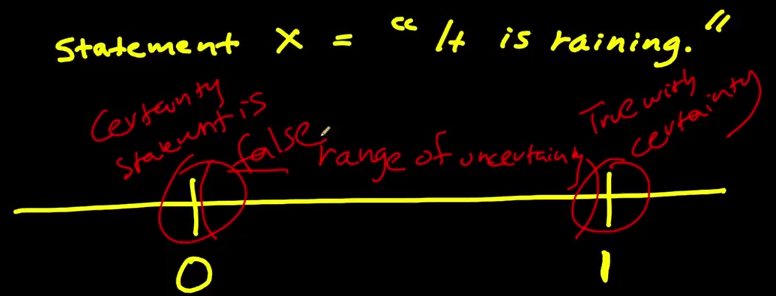 Statement X = "It is raining."
Certainty
statement is
false
range of uncertainty
True with
certainty
0
1